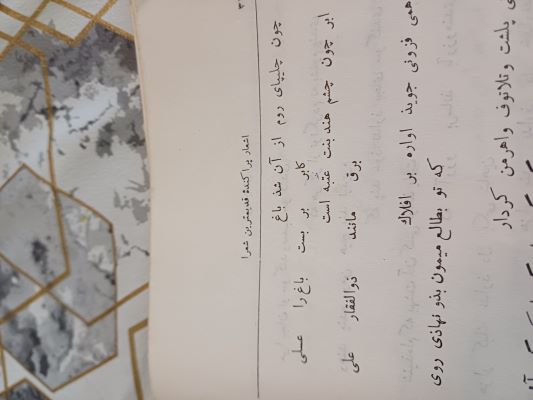 اشعار پراکندهٔ قدیمترین شعرا
چون چلیپای روم از آن شد باغ
کابر بر بست باغ را عسلی
ابر چون چشم هند بنت عتبه است
برق مانند ذوالفقار علی
همی فزونی جوید اواره بر افلاك
که تو بطالع میمون بدو نهاذی روی
پلشت و تلاتوف و اهرمن کردار